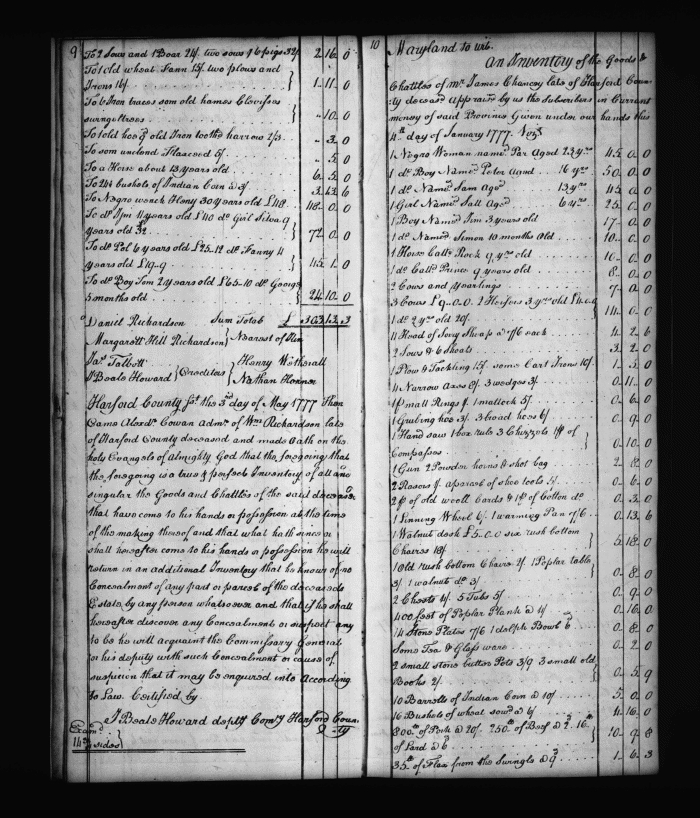 9
To 2 Sows and 1 Boar 24/. two sows & 6 pigs 32/. 2 16 0
To 1 old wheat Fann 15/. two plows and
Irons 16/. 1 11 0
To 6 Iron traces som old hames Clevisses
swingletrees 10 0
To 1 old hoe & old Iron tooth harrow 2/3 3 0
To som 5/. 5 0
To a Horse about 13 years old 6 5 0
To 24 bushels of Indian Corn a 3/. 3 13 6
To Negro wench Heny 30 years old £48 48 0 0
To do Jim 11 years old £40 do Girl Silva 9
years old 32 72 0 0
To do Pol 6 years old £25-12 do Fanny 4
years old £19-9 45 1 0
To do Boy Tom 2 years old £65-10 do George
5 months old 24 10 0
Daniel Richardson Sum Total £ 303 13 3
Margarett Hill Richardson } Nearest of Kin
Jas Talbott Henry Wetherall
Beale Howard } Creditors Nathan Horner
Harford County sst. this 3d day of May 1777 Then
Came Alexdr Cowan Admr of Wm Richardson late
of Harford County deceased and made Oath on the
holy Evangels of Almighty God that the foregoing that
the foregoing is a true & perfect Inventory of all and
singular the Goods and Chattles of the said deceased
that have come to his hands or possession at the time
of the making thereof and that what hath since or
shall hereafter come to his hands or possession he will
return in an additional Inventory that he knows of no
Concealment of any part or parcel of the deceaseds
Estate by any person whatsoever and that if he shall
hereafter discover any Concealment or suspect any
to be he will acquaint the Commissary General
or his deputy with such Concealment or cause of
suspicion that it may be enquired into According
to Law. Certified by
J Beale Howard depty Comry Harford Coun-
ty
Examd
14 sides
10
Maryland to wit.
An Inventory of the Goods &
Chattles of Mr James Chancey late of Harford Coun-
ty deceasd appraised by us the subscribers in Current
money of said Province Given under our hands this
4th day of January 1777. Viz
1 Negro Woman named Par Aged 23 yrs 45 0 0
1 do Boy Named Peter Aged 16 yrs 50 0 0
1 do Named Sam Aged 13 yrs 45 0 0
1 Girl Named Sall Aged 6 yrs 25 0 0
1 Boy Named Jim 3 years old 17 0 0
1 do Named Simon 10 months Old 10 0 0
1 Horse Calld Rock 9 yrs old 10 0 0
1 do Calld Prince 9 years old 8 0 0
2 Cows and yearlings 7 0 0
3 Cows £9-0-0 2 Heifers 3 yrs old £4-0-0
1 do 2 yrs old 20/. 14 0 0
11 Head of Sheep a 7/6 each 4 2 6
2 Sows & 6 Shoats 3 2 0
1 Plow & Tackling 15/. some Cart Irons 10/. 1 5 0
4 Narrow Axes 8/. 3 wedges 3/. 0 11 0
1 pr small Rings & 1 mattock 5/. 0 6 0
1 Grubing hoe 3/. 3 broad hoes 6/. 0 9 0
1 Hand saw 1 box rule 3 Chizzels 1 pr of
Compasses 0 10 0
1 Gun 2 Powder horns & shot bag 2 8 0
2 Rasors & a parcel of shoe tools 5/. 0 6 0
2 pr of old wooll Cards & 1 pr of Cotton do 0 3 0
1 Linning Wheel 6/. 1 warming Pan 7/6 0 13 6
1 Walnut desk £5-0-0 six rush bottom
Chairs 18/. 5 18 0
1 Old rush bottom Chairs 2/. 1 Poplar table
3/. 1 walnut do 3/. 0 8 0
2 Chests 4/. 5 Tubs 5/. 0 9 0
400 feet of Poplar Plank a 4/. 0 16 0
14 Stone Plates 7/6 1 delph Bowl 6d 0 8 0
Some Tea & Glass ware 0 2 0
2 small stone butter Pots 3/9 3 small old
Books 2/. 0 5 9
10 Barrells of Indian Corn a 10/. 5 0 0
16 Bushels of wheat sowd a 6/. 4 16 0
800 lb of Pork a 20/. 250 lb of Beef a 2d. 16 lb
of Lard a 6d 10 9 8
35 lb of Flax from the Swingle a 9d 1 6 3